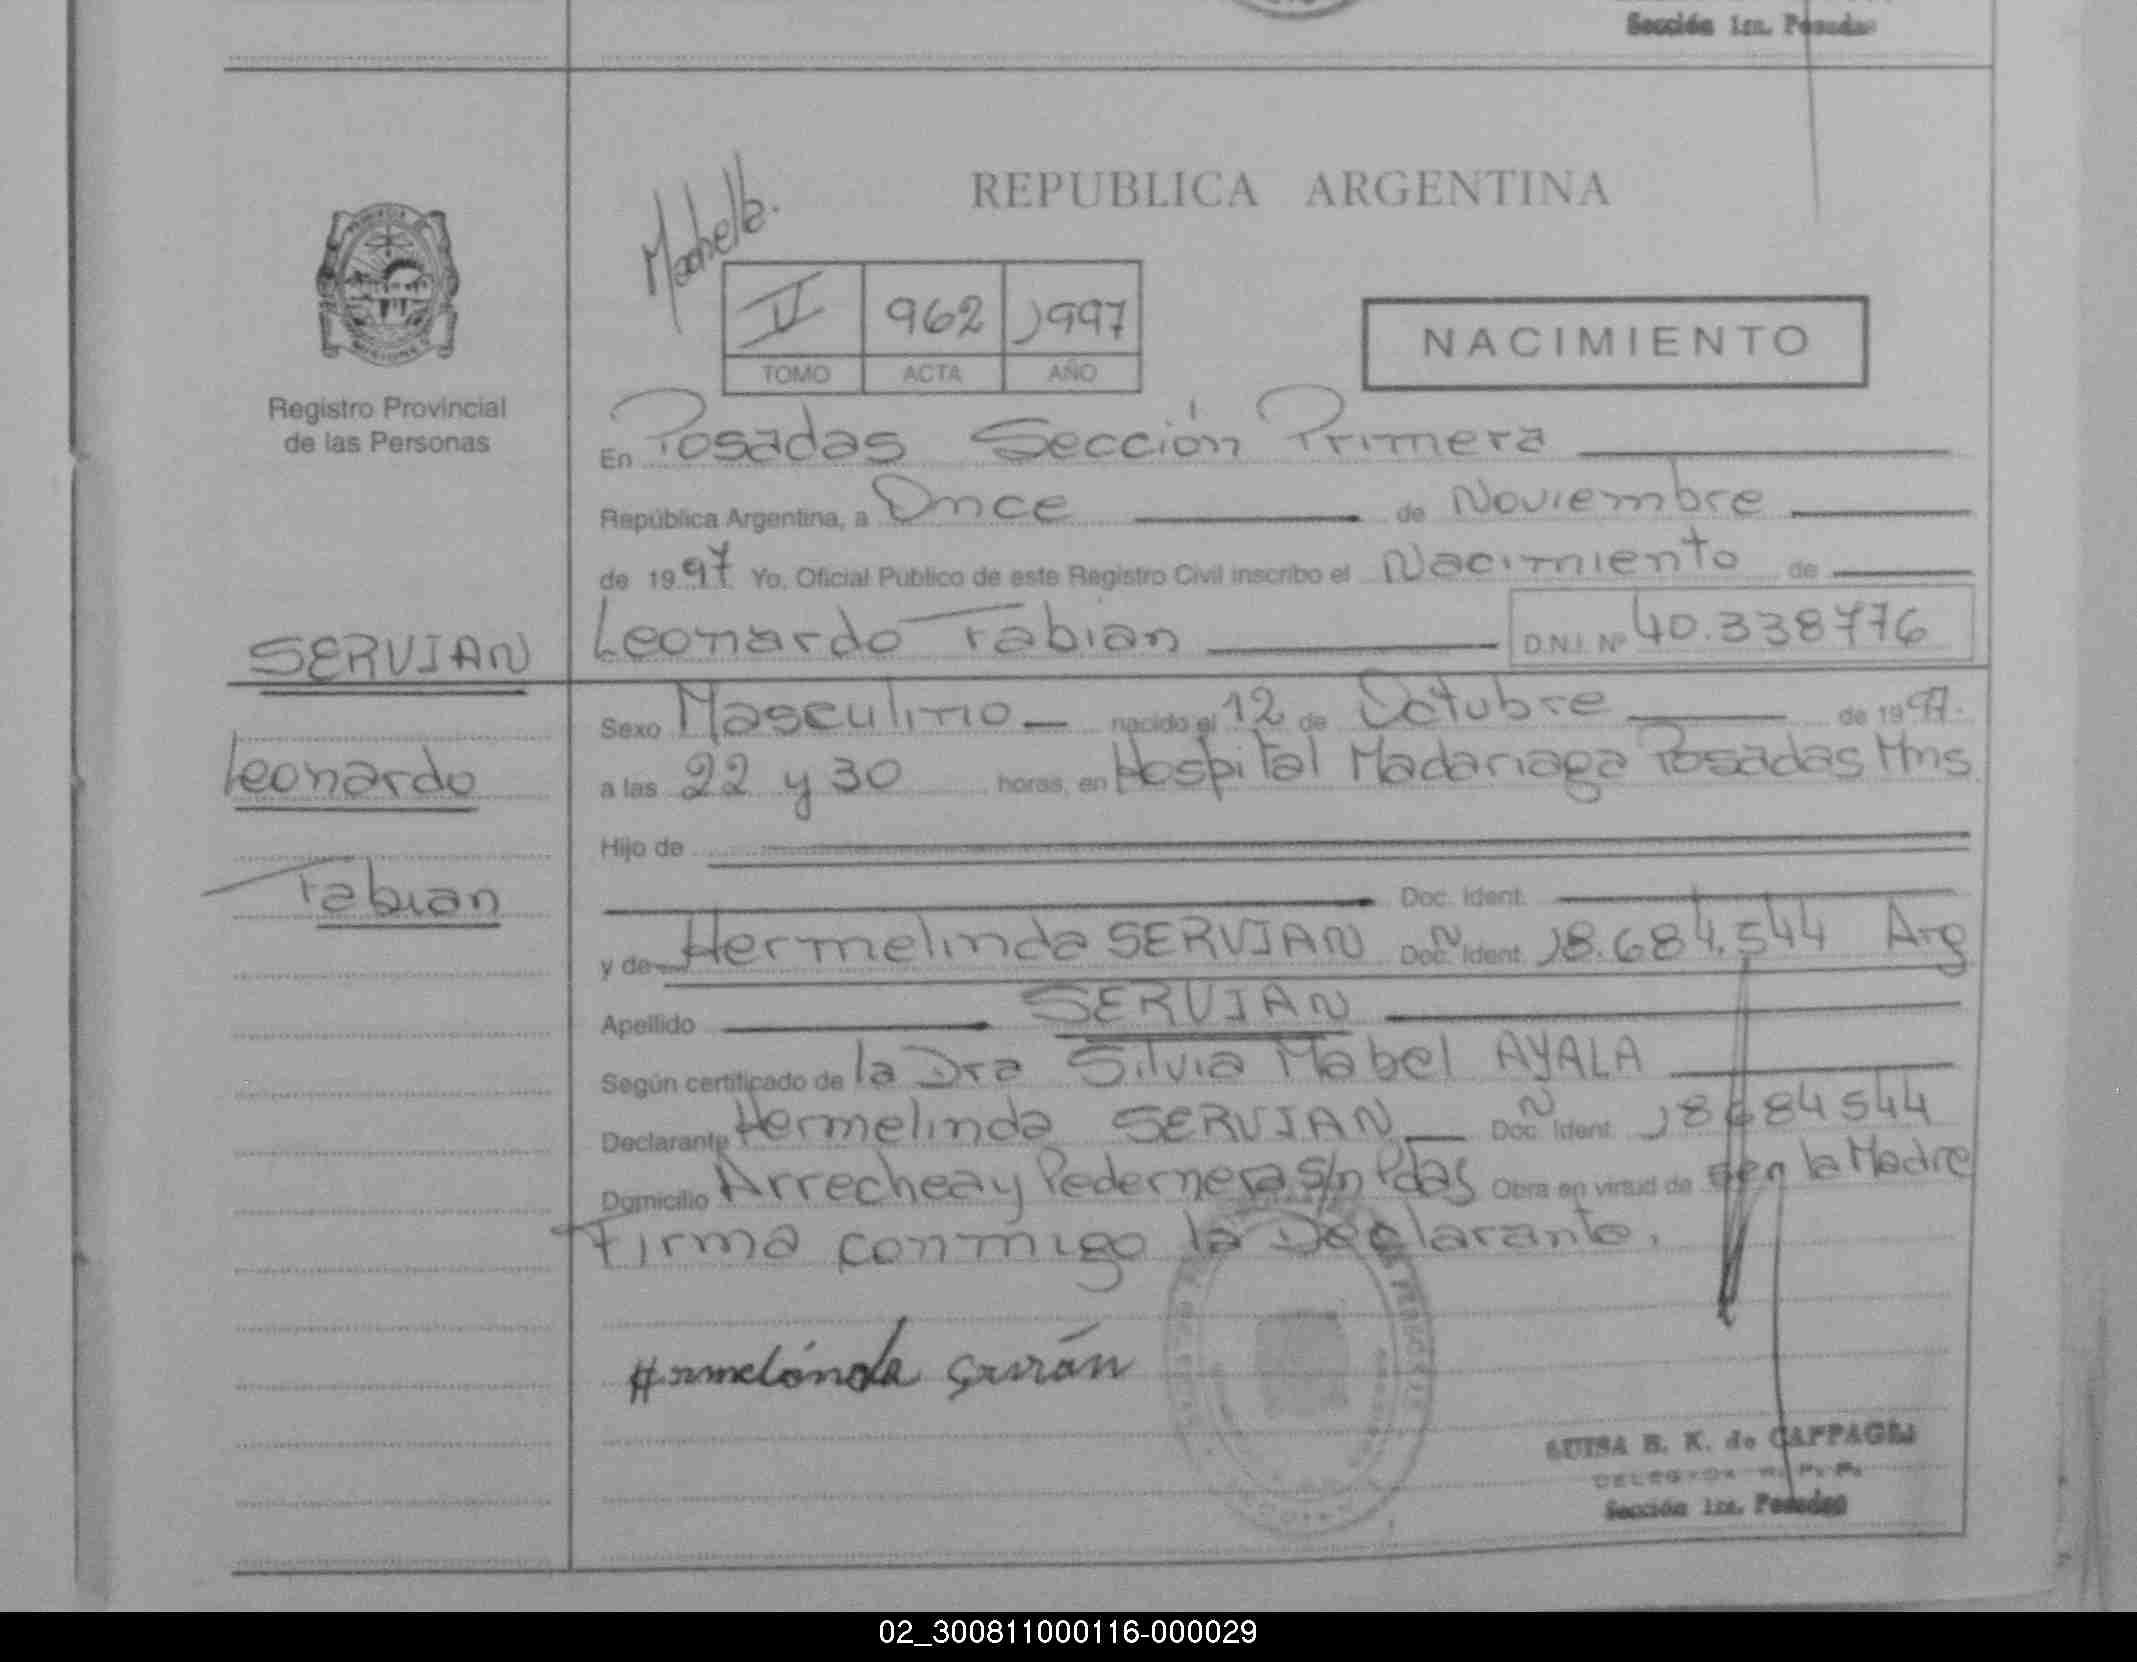 Sección 1ra. Posadas
REPUBLICA ARGENTINA
V 962 1997
TOMO ACTA AÑO
NACIMIENTO
Registro Provincial
de las Personas
En Posadas Sección Primera
República Argentina, a Once de Noviembre
de 1997 Yo, Oficial Público de este Registro Civil inscribo el Nacimiento de
SERVIAN
Leonardo Fabian D.N.I. Nº 40.338776
Sexo Masculino nacido el 12 de Octubre de 1997.
Leonardo
a las 22 y 30 horas, en Hospital Madariaga Posadas Mns
Hijo de
Fabian
Doc. Ident.
y de Hermelinda SERVIAN Doc. Ident. 18.684.544 Arg
Apellido SERVIAN
Según certificado de la Dra Silvia Mabel AYALA
Declarante Hermelinda SERVIAN Doc. Ident. 18684544
Domicilio Arrechea y Pedernera S/n Pdas Obra en virtud de ser la Madre
Firma conmigo la Declarante.
LUISA B. K. de
Sección 1ra. Posadas
02_300811000116-000029